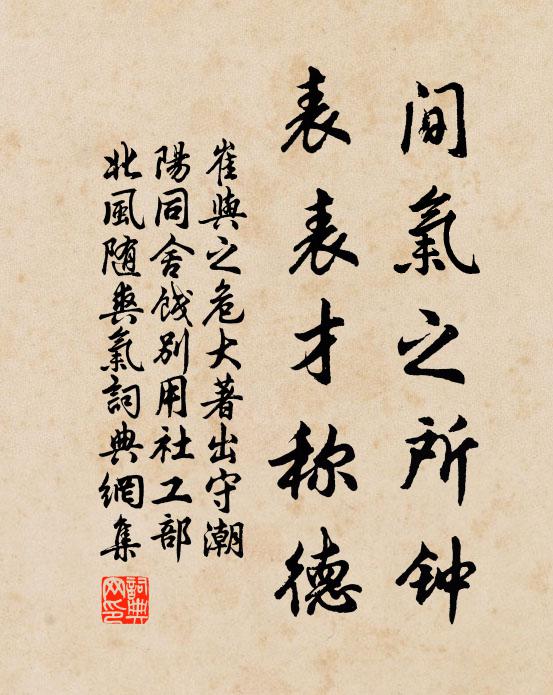 间氣之所钟
表表才称德
崔與之危大著出守潮
陽同舍饯别用社工部
北風随爽氣詞典網集
詞典网印